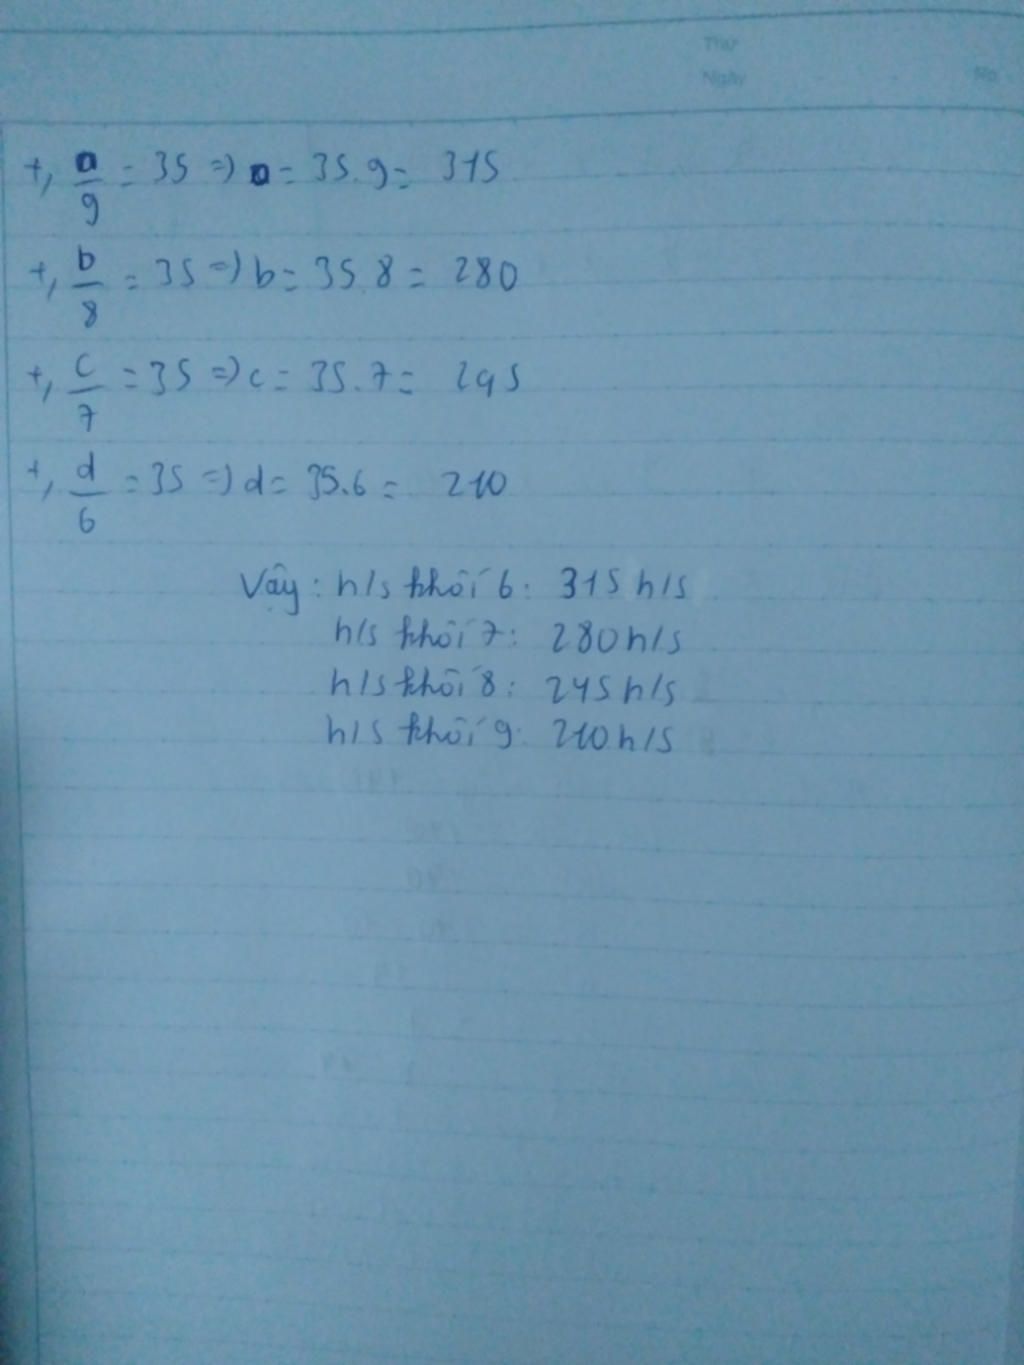 Thứ
Ngày No
+, a/9 = 35 => a = 35.9 = 315
+, b/8 = 35 => b = 35.8 = 280
+, c/7 = 35 => c = 35.7 = 245
+, d/6 = 35 => d = 35.6 = 210
Vậy: h/s khối 6: 315 h/s
h/s khối 7: 280 h/s
h/s khối 8: 245 h/s
h/s khối 9: 210 h/s